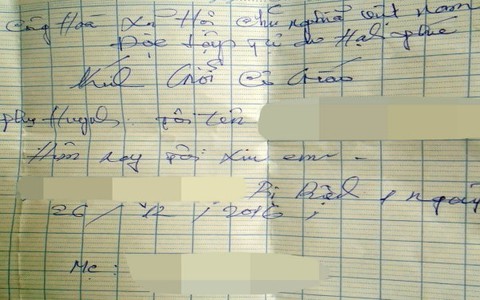 Cộng Hoà Xã Hội chủ nghĩa việt nam
Độc lập tự do Hạnh phúc
Kính Gởi Cô Giáo
phụ Huynh: tôi tên
Hôm nay tôi xin em
Bị Bệnh 1 ngày
26 / 12 / 2016 ,
Mẹ :